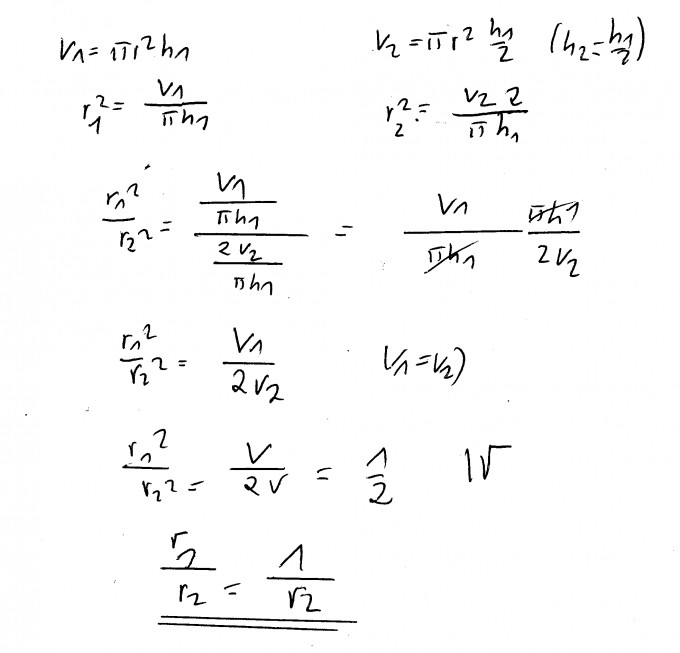 V1 = πr²h1    V2 = πr² h1/2    (h2 = h1/2)
r1² = V1/πh1    r2² = V2 2/π h1
r1²/r2² = (V1/πh1)/(2V2/πh1) = V1/πh1 πh1/2V2
r1²/r2² = V1/2V2    V1 = V2)
r1²/r2² = V/2V = 1/2    |√
r1/r2 = 1/√2